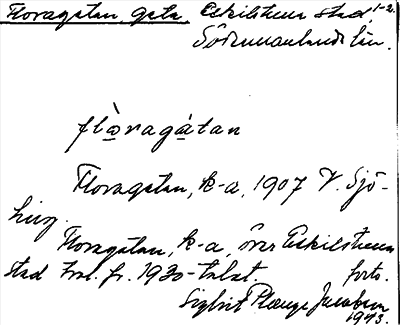 Floragatan, gata, Eskilstuna stad, 1-2.
Södermanlands län.
flo̲ragа́tan
Floragatan, k-a, 1907 V. Sjö-
berg.
Floragatan, k-a, över Eskilstuna
stad fr. 1930-talet. forts.
Sigbrit Plænge Jacobson
1973.